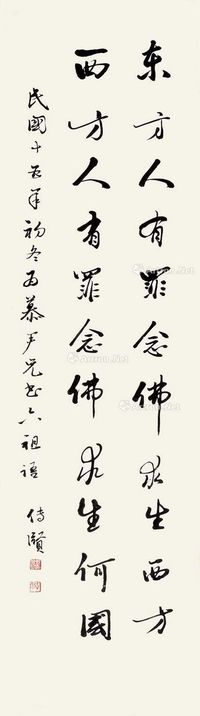 东方人有罪念佛求生西方
西方人有罪念佛求生何國
民國十五年初冬为慕尹兄书六祖语
傳賢